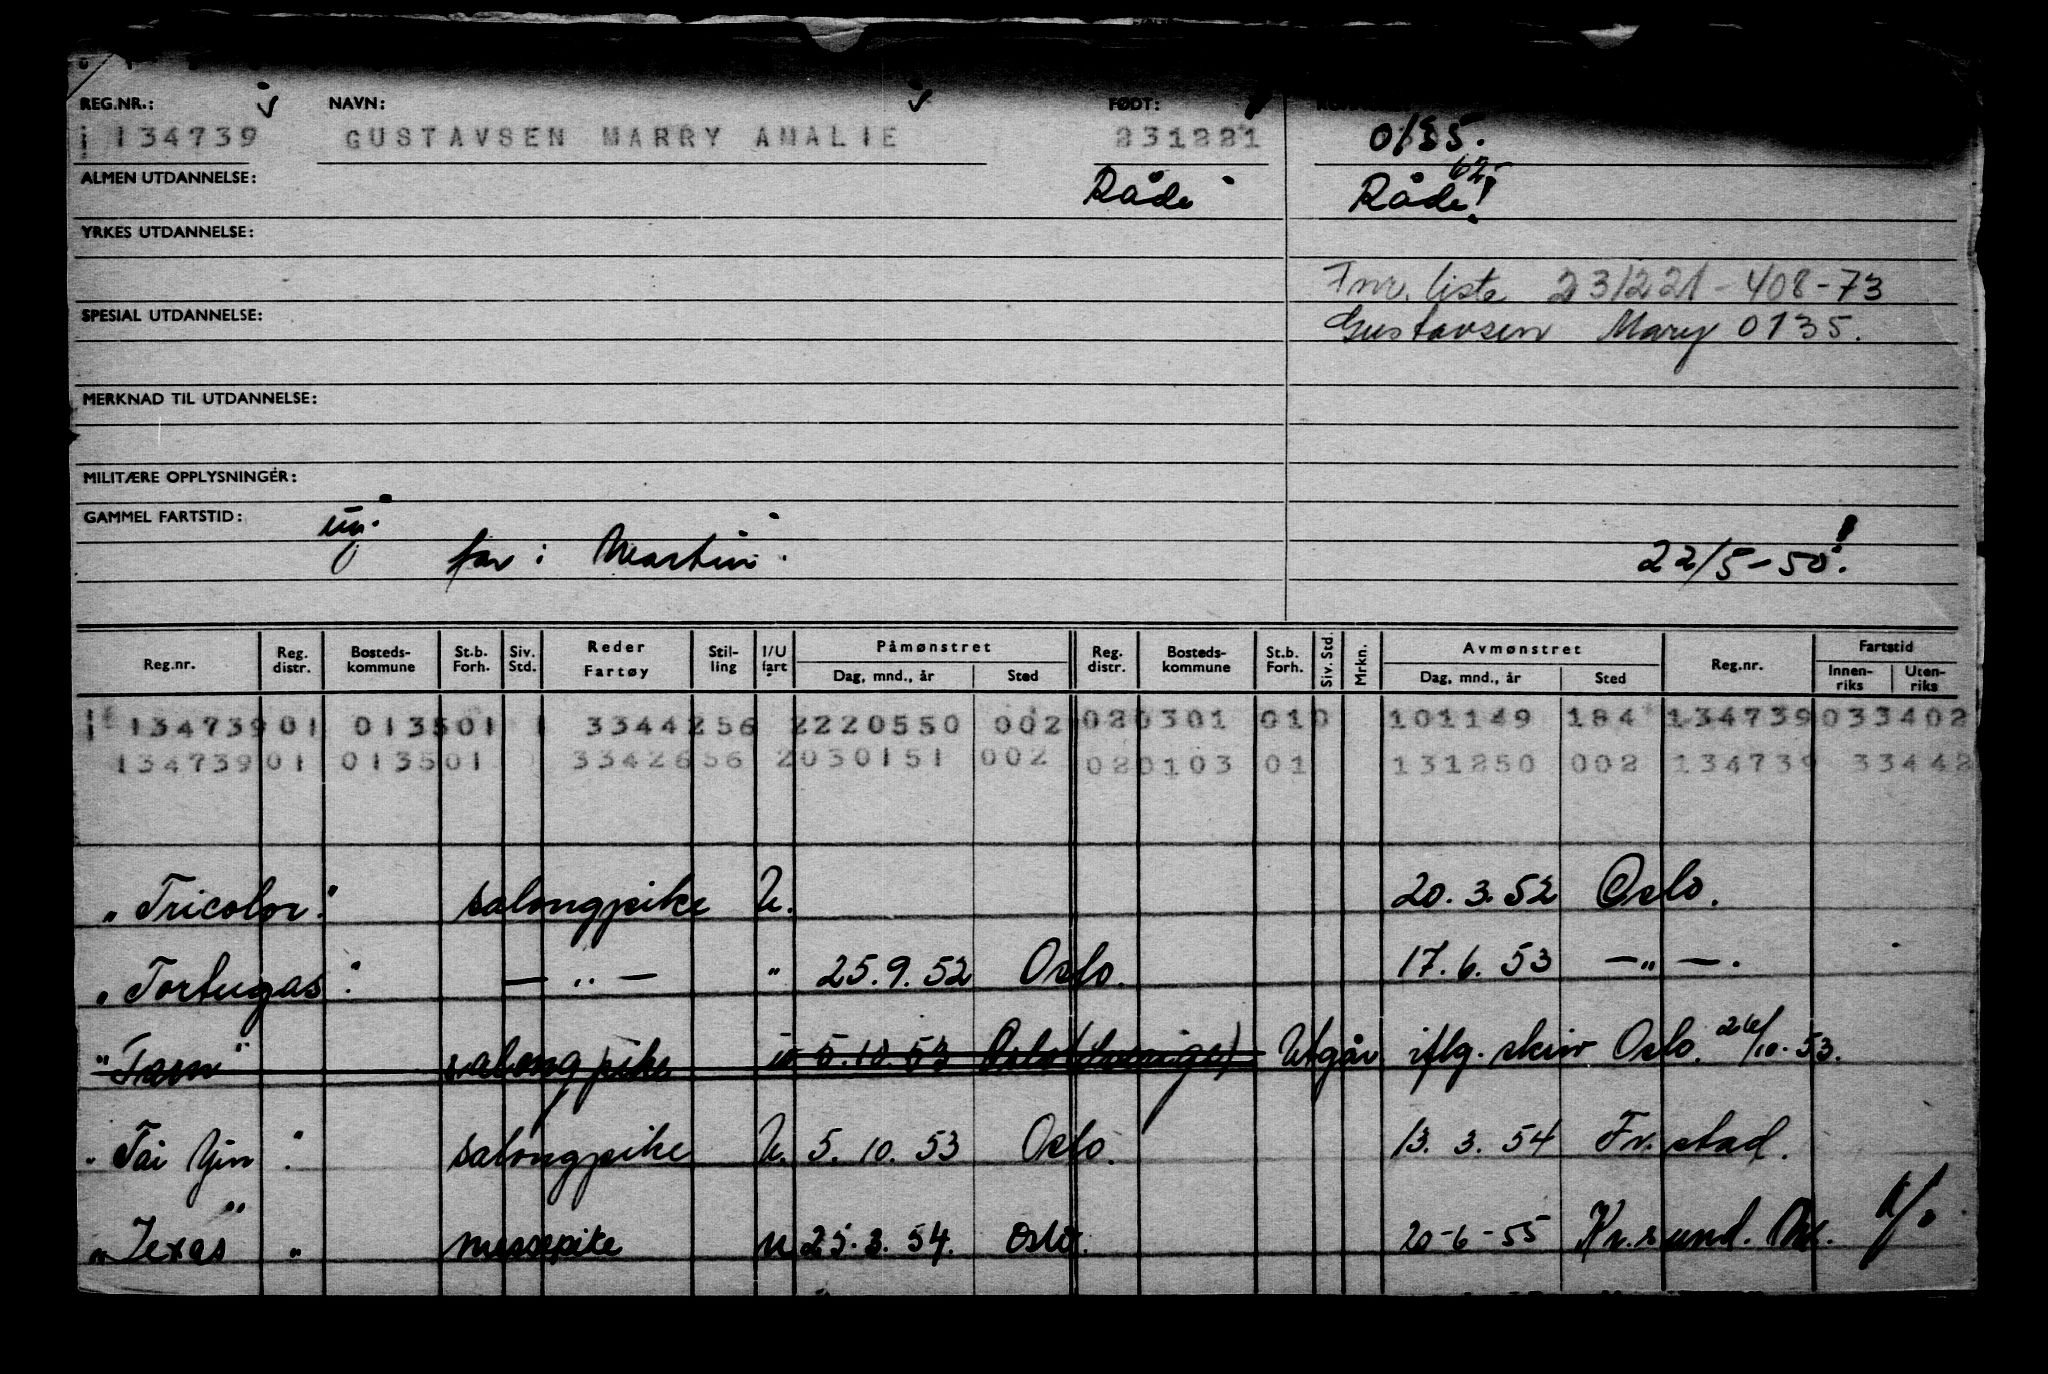 REG.NR.: NAVN: FØDT:
134739 GUSTAVSEN MARRY AMALIE 231221 0135.
62
ALMEN UTDANNELSE: Råde Råde!
YRKES UTDANNELSE:
Fnr. liste 231221-408-73
SPESIAL UTDANNELSE: Gustavsen Mary 0135.
MERKNAD TIL UTDANNELSE:
MILITÆRE OPPLYSNINGER:
GAMMEL FARTSTID: ug.
far: Martin. 22/5-50!
Reg.nr. Reg. distr. Bosteds-kommune St.b. Forh. Siv. Std. Reder Fartøy Stil-ling I/U fart Påmønstret Dag, mnd., år Sted Reg. distr. Bosteds-kommune St.b. Forh. Siv. Std. Mrkn. Avmønstret Dag, mnd., år Sted Reg.nr. Fartstid Innen-riks Uten-riks
134739 01 013501 1 3344256 2220550 002 020301 010 101149 184 134739 033402
134739 01 013501 3342656 2030151 002 020103 01 131250 002 134739 33442
"Tricolor." salongpike U. 20.3.52 Oslo.
"Tortugas". — " — " 25.9.52 Oslo. 17.6.53 — " —.
"Tarn" salongpike u 5.10.53 Oslo (Sverige) Utgår iflg. skriv Oslo. 26/10.53.
"Tai Yin". salongpike U. 5.10.53 Oslo. 13.3.54 Fr.stad.
"Texas" messepike u 25.3.54. Oslo. 20-6-55 Kr.sund.